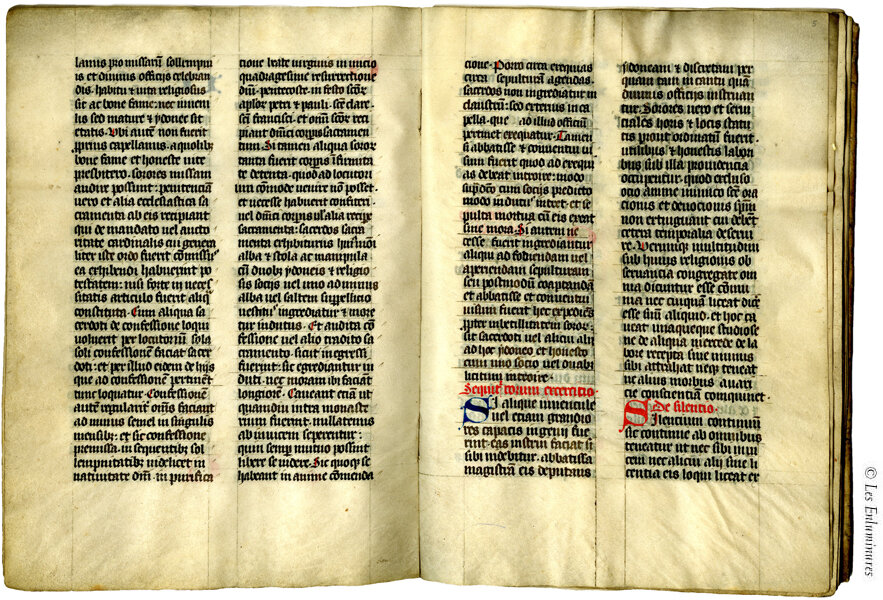 lanus pro missarum sollempni
is et diuinis officijs celebran
dis. habitu et uita religiosus
sit ac bone fame. nec iuueni
lis sed mature et ydonee sit
etatis. Vbi autē non fuerit
proprius capellanus. a quolibet
bone fame et honeste uite
presbitero. sorores missam
audire possunt. penitenciam
uero et alia ecclesiastica sa
cramenta ab eis recipiant
qui de mandato uel aucto
ritate cardinalis cui genera
liter iste ordo fuerit cōmissus
ea exhibendi habuerint po
testatem. nisi forte in neces
sitatis articulo fuerit aliqua
constituta. Cum aliqua sa
cerdoti de confessione loqui
uoluerit per locutoriū sola
soli confessionem faciat sacer
doti. et per illud eidem de hijs
que ad confessionem pertinent
tunc loquatur. Confessionē
autē regulariter oms faciant
ad minus semel in singulis
mensibꝫ. et sic confessione
premissa. in sequentibꝫ sol
lempnitatibꝫ uidelicet in
natiuitate dn̄i. in purifica
tione beate uirginis in inicio
quadragesime resurrectione
dn̄i. pentecoste. in festo sc̄or
aplor petri et pauli. sc̄e clare.
sc̄i francisci. et omī sc̄or reci
piant dn̄ici corpus sacramen
tum. Si tamen aliqua soror
tanta fuerit corporis ifirmita
te detenta. quod ad locutori
um cōmode uenire non posset.
et necesse habuerit confiteri.
uel dn̄ici corpus uel alia recipe
sacramenta. sacerdos sacra
menta exhibiturus huiusmodi
alba et stola ac manipula
cū duobꝫ ydoneis et religio
sis socijs uel uno ad minus
alba uel saltem suppellicio
uestitis ingrediatur et more
tur indutus. Et audita cō
fessione uel alio tradito sa
cramento. sicut ingressi
fuerint. sic egrediantur in
duti. nec moram ibi faciant
longiorē. Caueant etiā ut
quamdiu intra monaste
rium fuerint. nullatenus
ab inuicem seperentur.
quin semper mutuo possint
libere se uidere. Sic quoque se
habeant in anime cōmenda
cione. Porro circa exequias
circa sepulturam agendas.
sacerdos non ingrediatur in
claustrū. sed exterius in ca
pella. que ad illud officiū
pertinet exequatur. Tamen
si abbatisse et conuentui ui
sum fuerit quod ad exequi
as debeat introire. modo
supradicto cum socijs predicto
modo indutus intret. et se
pulta mortua cū eis exeat
sine mora. Si autem ne
cesse fuerit ingrediantur
aliqui ad fodiendam uel
aperiendam sepulturam
seu postmodū coaptandā
et abbatisse et conuentui
uisum fuerit hec expediēs
propter imbecillitatem soror.
sit sacerdoti uel alicui alii
ad hoc ydoneo et honesto
cum uno socio uel duabꝫ
licitum introire.
Sequitur sororum exercitio
Si alique iuuencule
uel etiam grandio
res capacis ingenij fue
rint. eas instrui faciat si
sibi uidebitur. abbatissa
magistrā eis deputans
ydoneam et discretam per
quam tam in cantu quā
diuinis officijs instruan
tur. Sorores uero et serui
ciales horis et locis statu
tis prout ordinatū fuerit.
utilibus et honestis labori
bus sub illa prouidencia
occupentur. quod excluso
ocio anime inimico. sc̄e ora
cionis et deuocionis spm̄
non extinguant. cui debent
cetera temporalia deserui
re. Verumptamen multitudini
sub huius religionis ob
seruancia congregate om
nia dicuntur esse cōmu
nia. nec cuiquam liceat dice
esse suū aliquid. et hoc ca
ueat unaqueque studiose
ne de aliqua mercede de la
bore recepta siue munus
sibi attrahat neque teneat
ne alius morbus auari
cie conscientiā cōmquinet.
De silentio
Silentium continuū
sic continue ab omnibus
teneatur ut nec sibi inui
cem nec alicui alij sine li
centia eis loqui liceat ex
5
© Les Enluminures